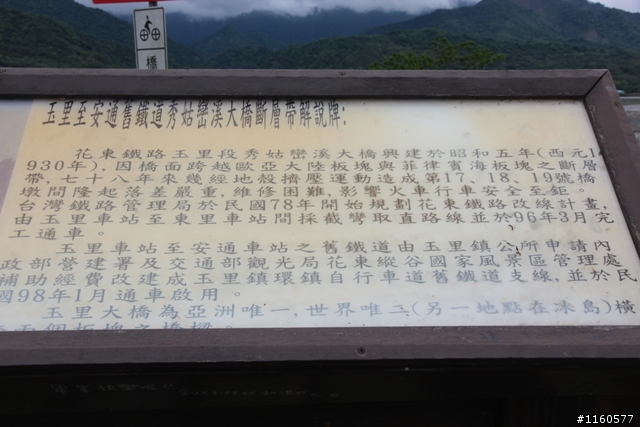 橋
玉里至安通舊鐵道秀姑巒溪大橋斷層帶解說牌:
花東鐵路玉里段秀姑巒溪大橋興建於昭和五年(西元1
930年),因橋面跨越歐亞大陸板塊與菲律賓海板塊之斷層
帶,七十八年來幾經地殼擠壓運動造成第17、18、19號橋
墩間隆起落差嚴重,維修困難,影響火車行車安全至鉅。
台灣鐵路管理局於民國78年開始規劃花東鐵路改線計畫,
由玉里車站至東里車站間採截彎取直路線並於96年3月完
工通車。
玉里車站至安通車站之舊鐵道由玉里鎮公所申請內
政部營建署及交通部觀光局花東縱谷國家風景區管理處
補助經費改建成玉里鎮環鎮自行車道舊鐵道支線,並於民
國98年1月通車啟用。
玉里大橋為亞洲唯一,世界唯二(另一地點在冰島)橫
#1160577